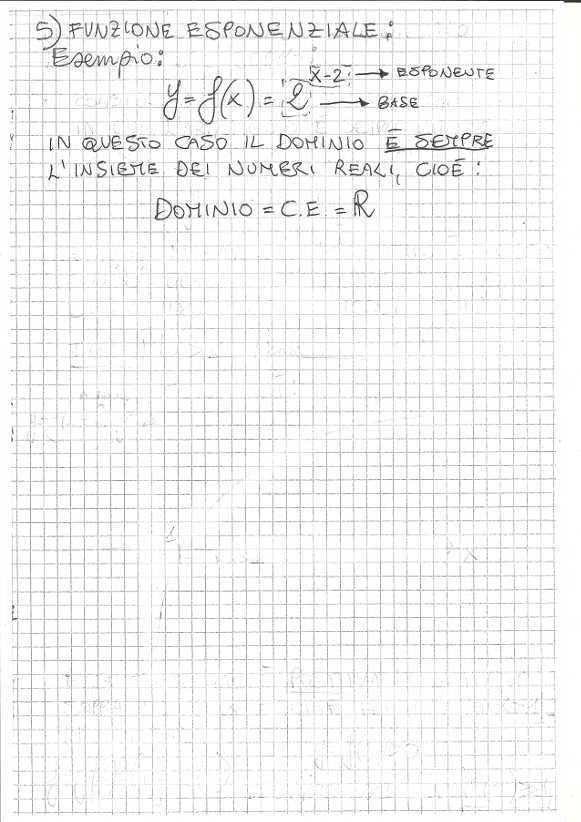 5) FUNZIONE ESPONENZIALE:
Esempio:
y = f(x) = 2^(x-2) → ESPONENTE
→ BASE
IN QUESTO CASO IL DOMINIO È SEMPRE
L'INSIEME DEI NUMERI REALI, CIOÈ:
DOMINIO = C.E. = ℝ